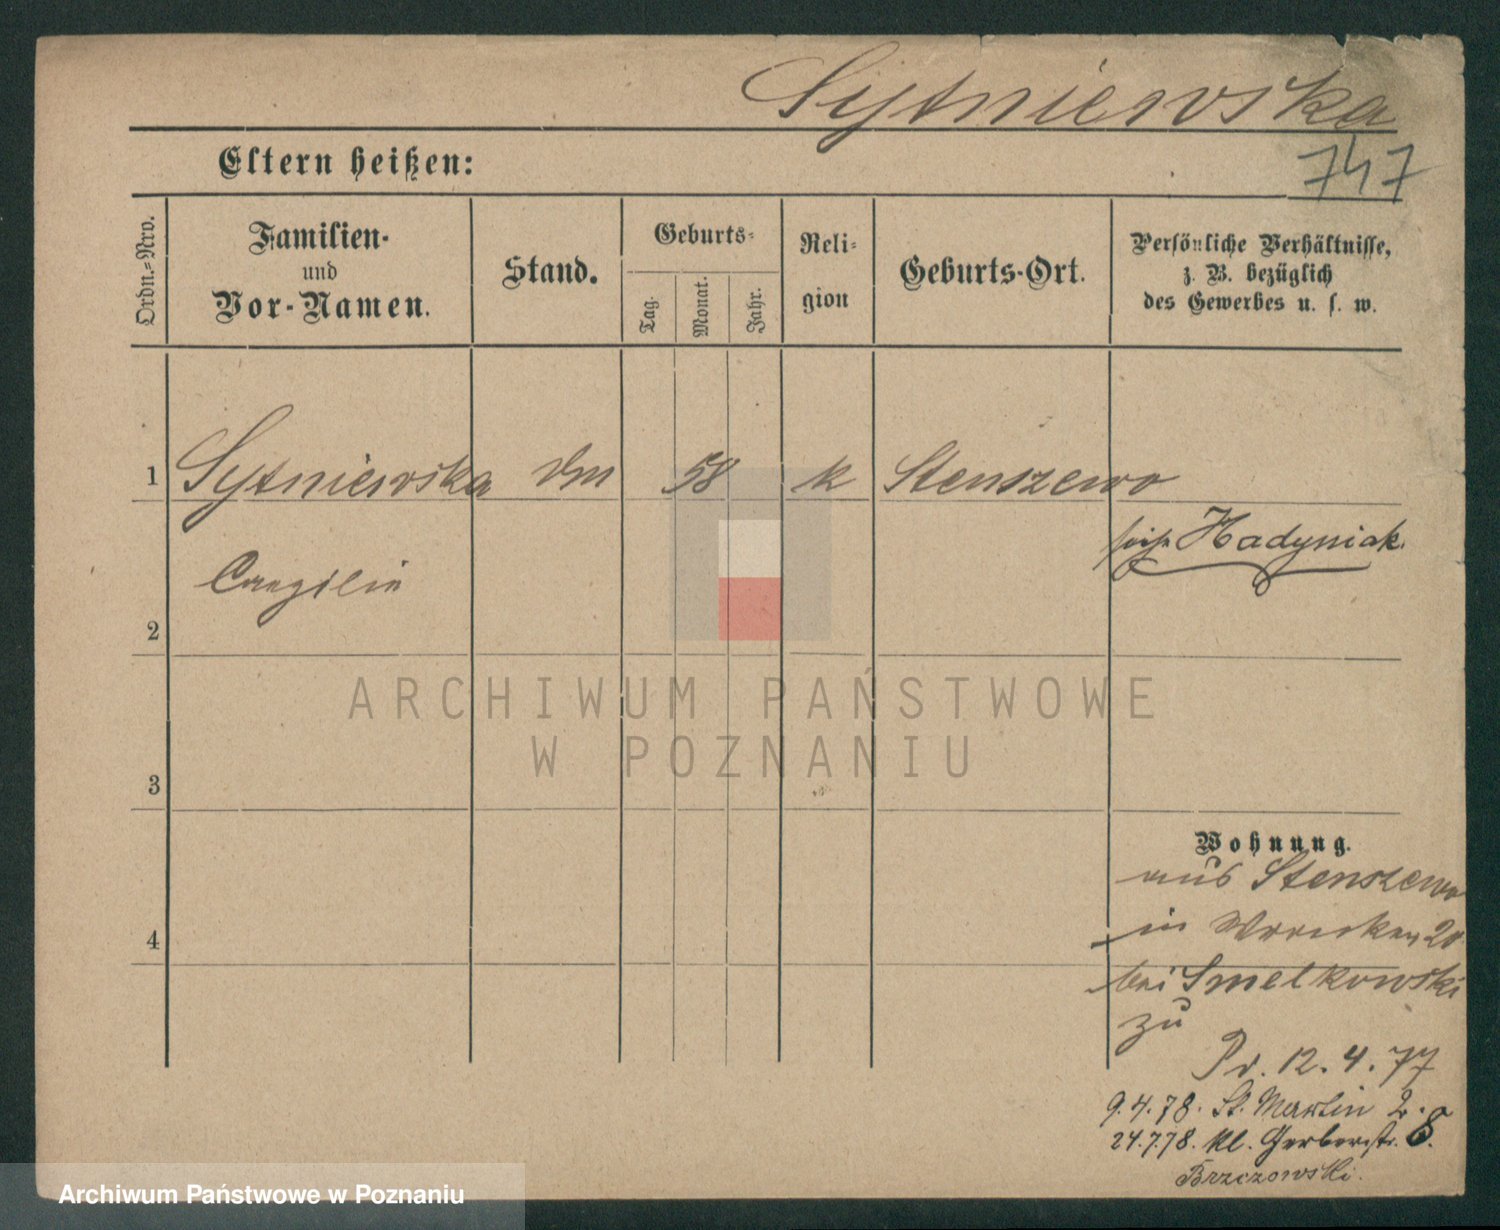 Sytniewska
747
Eltern heißen:
Ordn.-Nro.
Familien-
und
Vor-Namen.
Stand.
Geburts-
Tag.
Monat.
Jahr.
Reli-
gion
Geburts-Ort.
Persönliche Verhältnisse,
z. B. bezüglich
des Gewerbes u. s. w.
1 Sytniewska 58 k Stenszewo
Hadyniak.
2
3
4
Wohnung.
aus Stenszewo
in 20
bei Smelkowski
zu
Pr. 12.4.77
9.4.78. St. Martin 2.
24.7.78. Kl. Gerberstr. 8.
Brzezowski.
ARCHIWUM PAŃSTWOWE
W POZNANIU
Archiwum Państwowe w Poznaniu